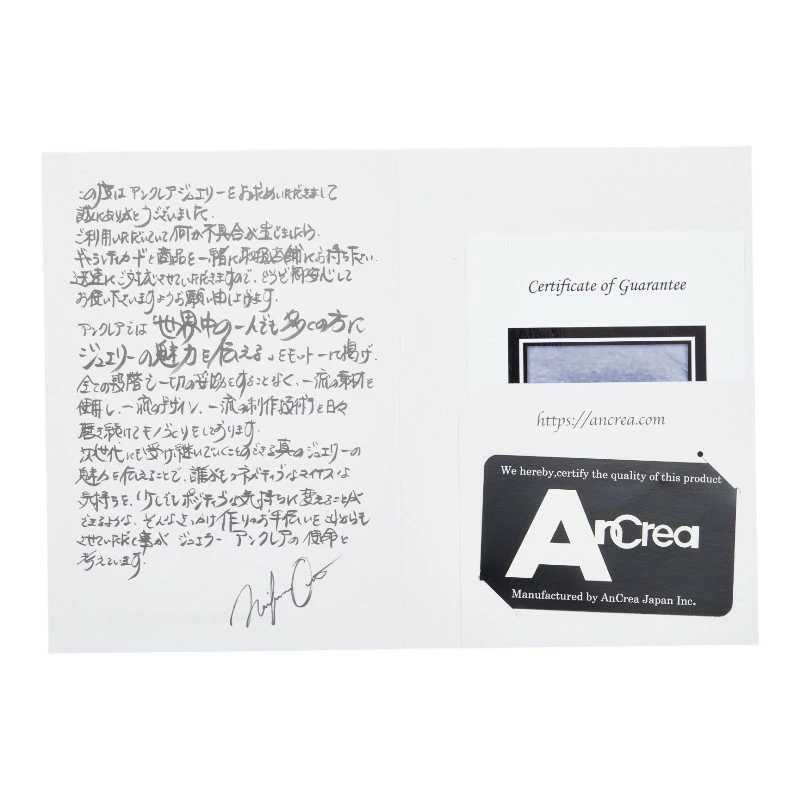 この度はアンクレアジュエリーをお求めいただきまして
誠にありがとうございました。
ご利用いただいていて何か不具合が生じましたら、
ギャランティカードと商品を一緒にお取扱店舗にお持ち下さい。
迅速にご対応させていただきますので、どうぞ安心して
お使い下さいますようお願い申し上げます。
アンクレアでは「世界中の一人でも多くの方に
ジュエリーの魅力を伝える」をモットーに掲げ、
全ての段階で一切の妥協をすることなく、一流の素材を
使用し、一流のデザイン、一流の制作技術を日々
磨き続けてモノづくりをしております。
次世代にも受け継いでいくことのできる真のジュエリーの
魅力を伝えることで、誰がもつネガティブなマイナスな
気持ちを、少しでもポジティブな気持ちに変えることが
できるような、そんなきっかけ作りのお手伝いを心からも
させていただく事が ジュエラー アンクレアの使命と
考えています。
Certificate of Guarantee
https://ancrea.com
We hereby,certify the quality of this product
AnCrea
Manufactured by AnCrea Japan Inc.